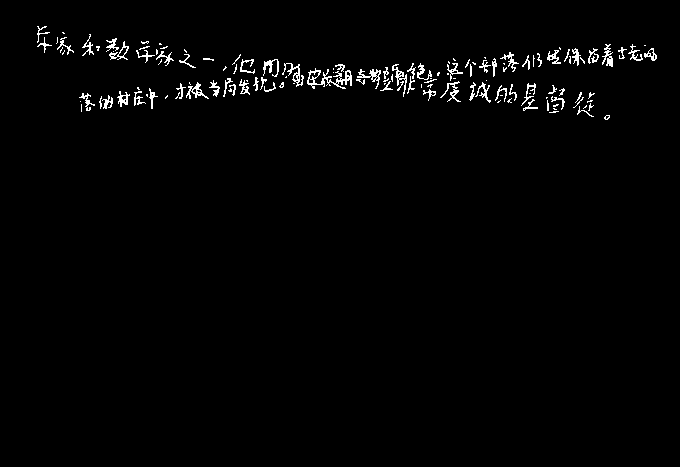 家和数学家之一，他同时这个部落仍然保留着古老的
落的村庄中，才被当局发现。非常虔诚的基督徒。